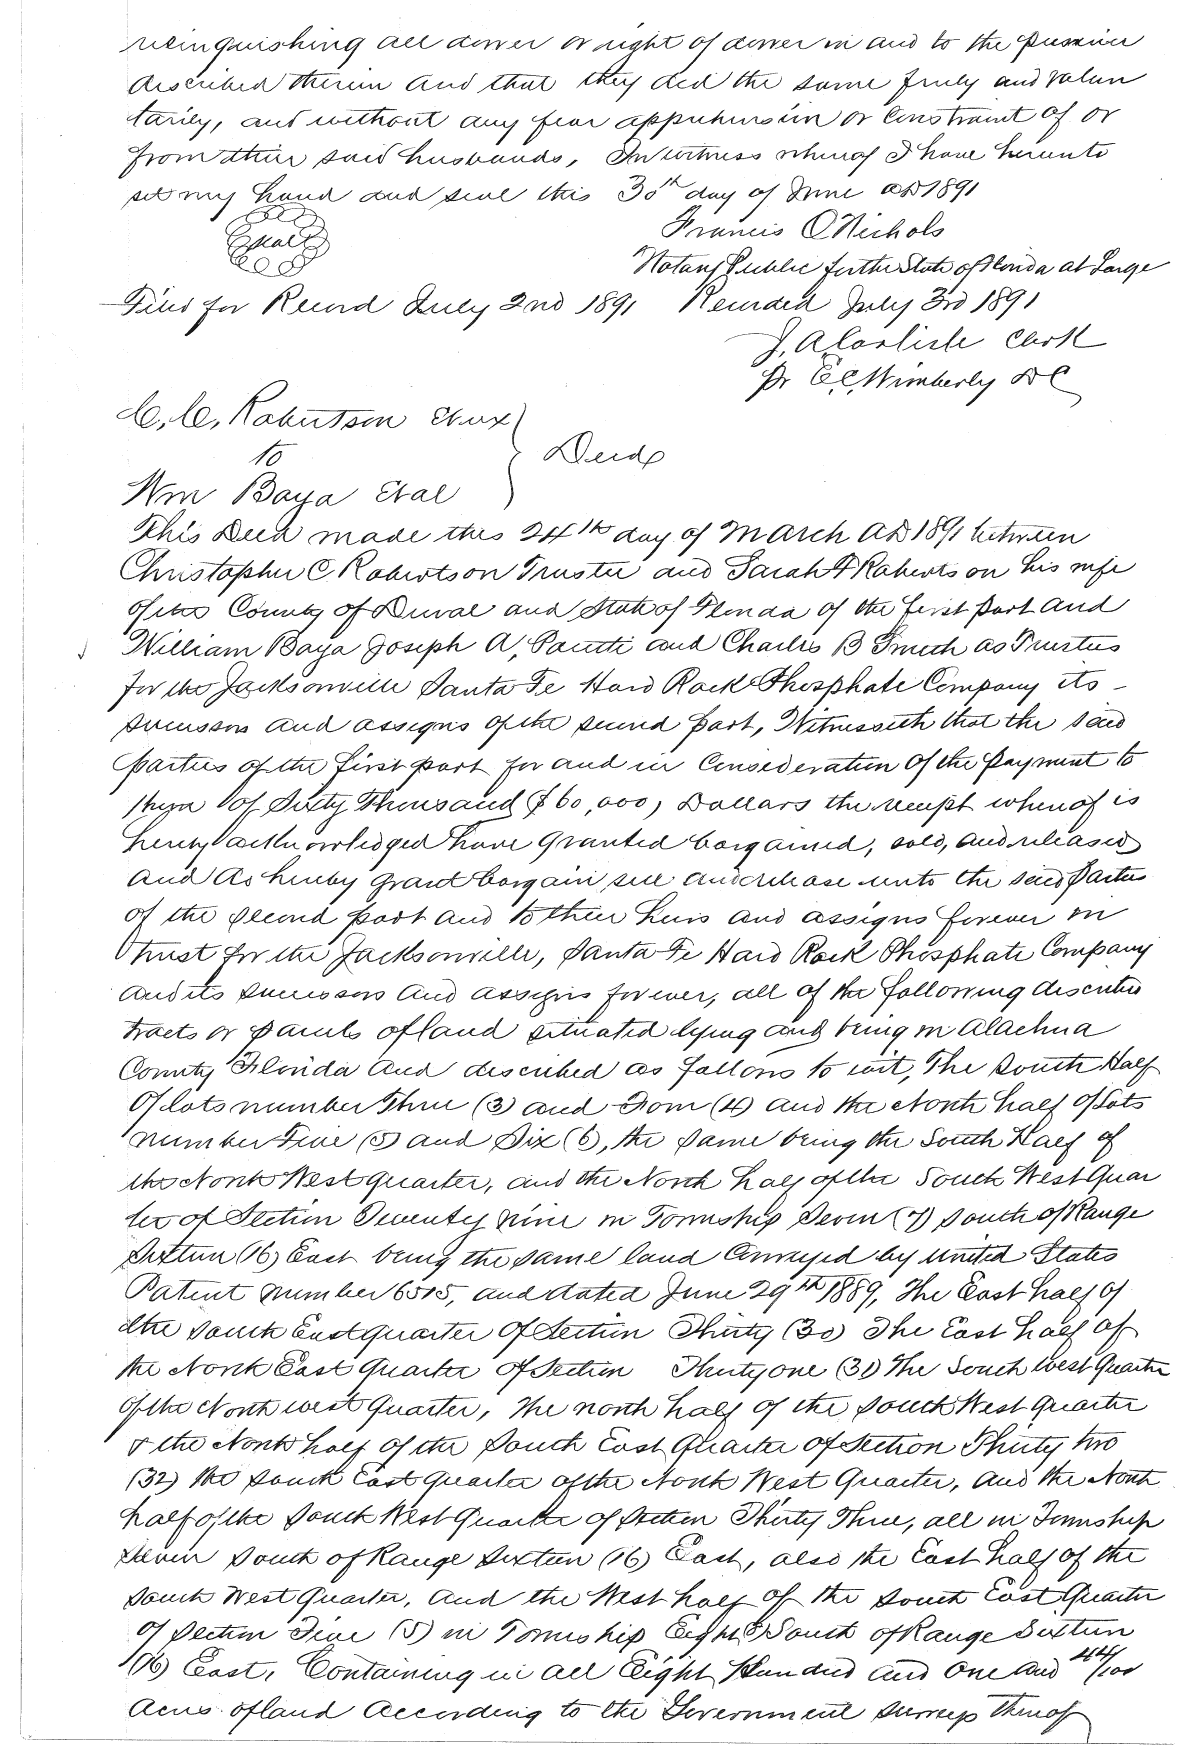 relinquishing all dower or right of dower in and to the premises
described therein and that they did the same freely and volun
tarily, and without any fear apprehension or constraint of or
from their said husbands, In witness whereof I have hereunto
set my hand and seal this 30th day of June AD 1891
Francis C Nichols
Seal
Notary Public for the State of Florida at Large
Filed for Record July 2nd 1891 Recorded July 3rd 1891
J, A Carlisle Clerk
Pr E C, Wimberly D C
C, C, Robertson et ux
to
Deed
Wm Baya et al
This Deed made this 24th day of March AD 1891 between
Christopher C Robertson Trustee and Sarah F Robertson his wife
of the County of Duval and State of Florida of the first part and
William Baya Joseph A, and Charles B Smith as Trustees
for the Jacksonville Santa Fe Hard Rock Phosphate Company its
successors and assigns of the second part, Witnesseth that the said
parties of the first part for and in Consideration of the payment to
them of Sixty Thousand ($60,000) Dollars the receipt whereof is
hereby acknowledged have granted bargained, sold, and released
and do hereby grant bargain sell and release unto the said parties
of the second part and to their heirs and assigns forever in
trust for the Jacksonville, Santa Fe Hard Rock Phosphate Company
and its successors and assigns forever, all of the following described
tracts or parcels of land situated lying and being in Alachua
County Florida and described as follows to wit, The South Half
of lots number Three (3) and Four (4) and the North half of Lots
number Five (5) and Six (6), the same being the South Half of
the North West quarter, and the North half of the South West Quar
ter of Section Twenty nine in Township Seven (7) South of Range
Sixteen (16) East being the same land conveyed by United States
Patent number 6515, and dated June 29th 1889, The East half of
the South East quarter of Section Thirty (30) The East half of
the North East Quarter of Section Thirty one (31) The South west Quarter
of the North west Quarter, The north half of the South West Quarter
& the North half of the South East Quarter of Section Thirty two
(32) the South East quarter of the North West Quarter, and the North
half of the South West Quarter of Section Thirty Three, all in Township
Seven South of Range Sixteen (16) East, also the East half of the
South West Quarter, and the West half of the South East Quarter
of Section Five (5) in Township Eight 8 South of Range Sixteen
(16) East, Containing in all Eight Hundred and One and 44/100
Acres of land According to the Government Surveys thereof